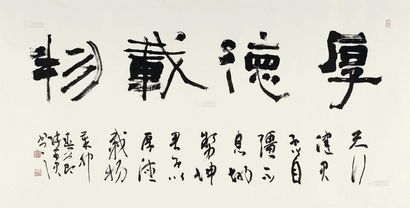 厚德載物
天行
健君
子以自
彊不
息地
勢坤
君子以
厚德
載物